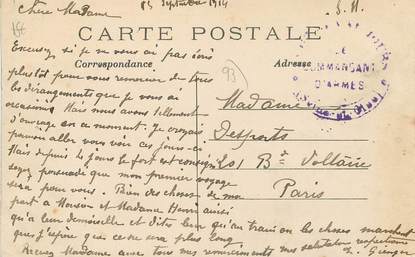 Chère Madame
15 Septembre 1914
S. M.
CARTE POSTALE
Correspondance
Adresse
Excusez si je ne vous ai pas écris
plus tôt pour vous remercier de tous
les dérangements que je vous ai
occasionné. Mais nous avons tellement
d'ouvrage en ce moment. je croyais
pouvoir aller vous voir ces jours-ci
Mais depuis 4 jours le fort est consigné
soyez persuadée que mon premier voyage
sera pour vous. Bien des choses de ma
part à Monsieur et Madame Henri ainsi
qu'à leur demoiselle et dites leur qu'au train où les choses marchent
que j'espère que ce ne sera plus long.
Recevez Madame avec tous mes remerciements mes salutations respectueuses
93
Madame
Desports
201 Bd Voltaire
Paris
LE
COMMANDANT
D'ARMES